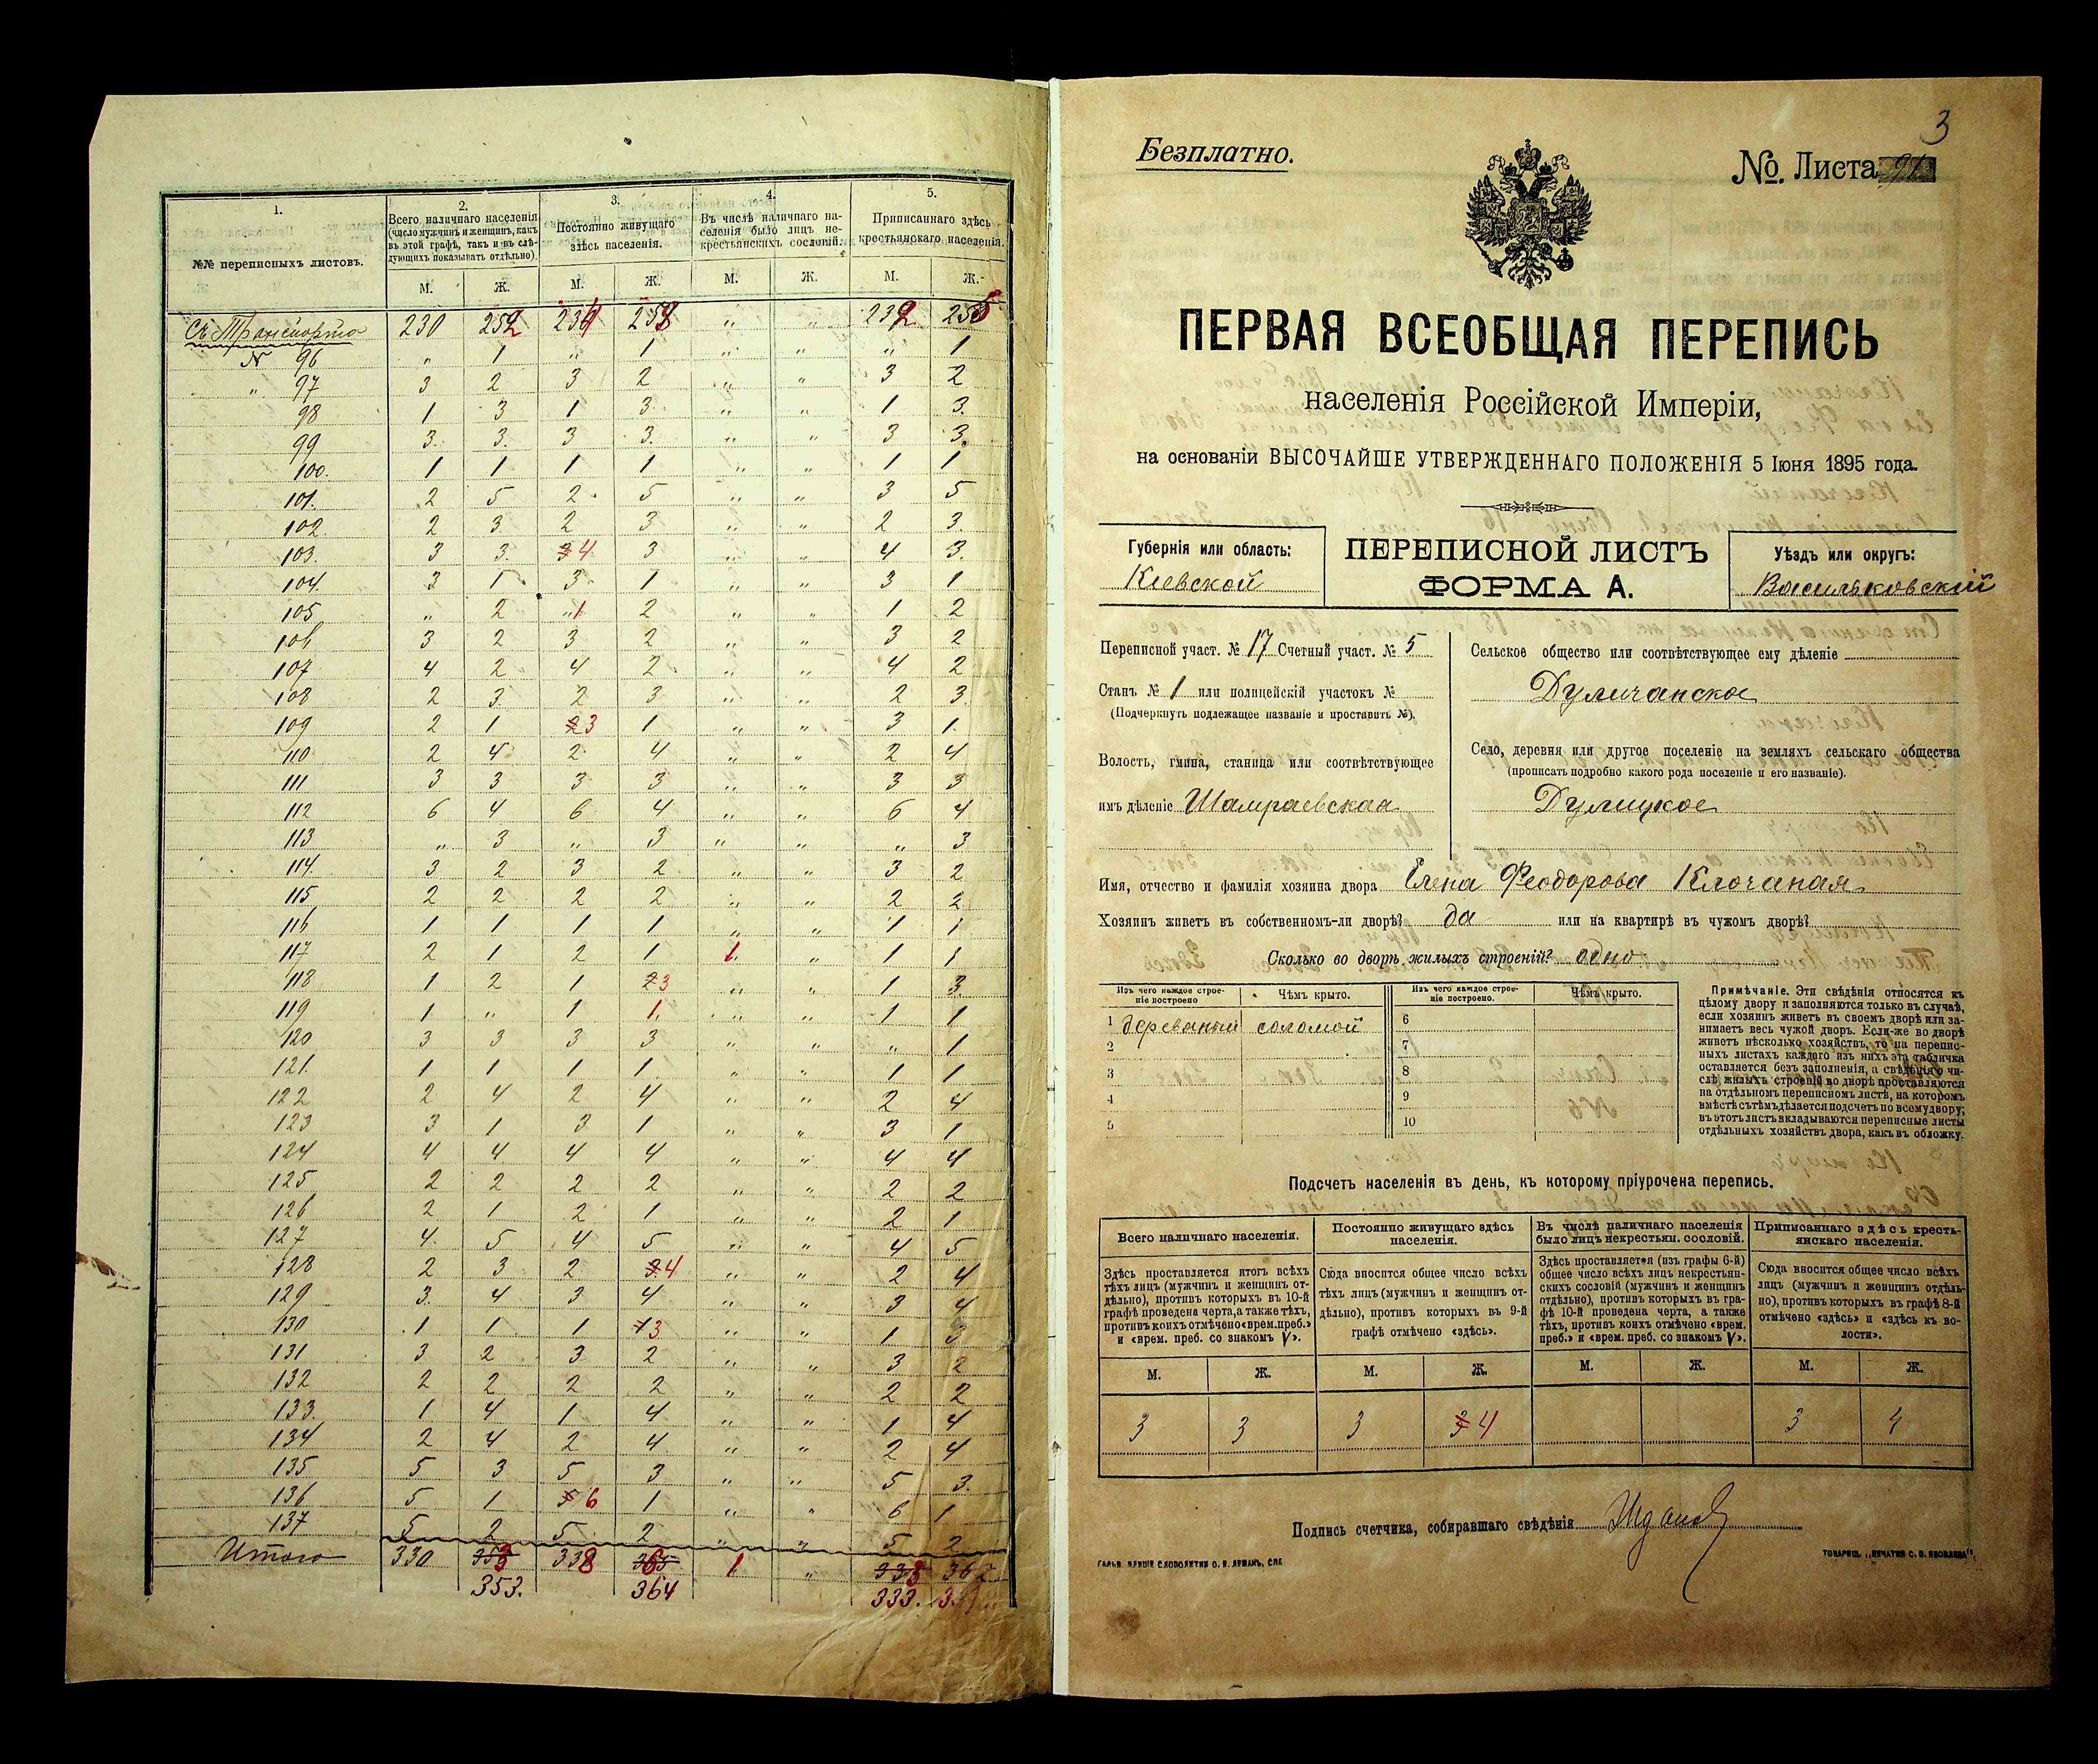 1.
2.
3.
4.
5.
№№ переписныхъ листовъ.
Всего наличнаго населенія
(число мужчинъ и женщинъ, какъ
въ этой графѣ, такъ и въ слѣ-
дующихъ показывать отдѣльно).
Постоянно живущаго
здѣсь населенія.
Въ числѣ наличнаго на-
селенія было лицъ не-
крестьянскихъ сословій.
Приписаннаго здѣсь
крестьянскаго населенія.
М. Ж. М. Ж. М. Ж. М. Ж.
Съ Транспорта 230 252 234 258 „ „ 232 255
№ 96 „ 1 „ 1 „ „ „ 1
„ 97 3 2 3 2 „ „ 3 2
98 1 3 1 3 „ „ 1 3.
99 3. 3. 3 3. „ „ 3 3.
100. 1 1 1 1 „ „ 1 1
101. 2 5 2 5 „ „ 3 5
102. 2 3. 2 3 „ „ 2 3.
103. 3 3. 3 4 3 „ „ 4 3.
104. 3 1 3 1 „ „ 3 1
105 „ 2 „1 2 „ „ 1 2
106 3 2 3 2 „ „ 3 2
107 4 2 4 2 „ „ 4 2
108 2 3. 2 3 „ „ 2 3.
109 2 1 2 3 1 „ „ 3 1.
110 2 4 2 4 „ „ 2 4
111 3 3 3 3 „ „ 3 3
112 6 4 6 4 „ „ 6 4
113 „ 3 „ 3 „ „ „ 3
114. 3 2 3 2 „ „ 3 2
115 2 2 2 2 „ „ 2 2
116 1 1 1 1 „ „ 1 1
117 2 1 2 1 1. „ 1 1
118 1 2 1 2 3 „ „ 1 3.
119 1 „ 1 1. „ „ 1 1
120 3 3 3 3 „ „ „ 1
121. 1 1 1 1. „ „ 1 1
122 2 4 2 4 „ „ 2 4
123 3 1 3 1 „ „ 3 1
124 4 4 4 4 „ „ 4 4
125 2 2 2 2 „ „ 2 2
126 2 1 2 1 „ „ 2 1
127 4. 5 4 5 „ „ 4 5
128 2 3 2 3 4 „ „ 2 4
129 3. 4 3 4 „ „ 3 4
130 1 1 1 1 3 „ „ 1 3
131 3 2 3 2 „ „ 3 2
132 2 2 2 2 „ „ 2 2
133. 1 4 1 4 „ „ 1 4
134 2 4 2 4 „ „ 2 4
135 5 3 5 3 „ „ 5 3.
136 5 1 5 6 1 „ „ 6 1
137 5 2 5 2 „ „ 5 2
Итого 330 353 338 365 1 „ 338 362
353. 364 333.
3
Безплатно.
№ Листа
ПЕРВАЯ ВСЕОБЩАЯ ПЕРЕПИСЬ
населенія Россійской Имперіи,
на основаніи ВЫСОЧАЙШЕ УТВЕРЖДЕННАГО ПОЛОЖЕНІЯ 5 Іюня 1895 года.
Губернія или область:
Кіевской
ПЕРЕПИСНОЙ ЛИСТЪ
ФОРМА А.
Уѣздъ или округъ:
Васильковскій
Переписной участ. № 17 Счетный участ. № 5
Станъ № 1 или полицейскій участокъ №
(Подчеркнуть подлежащее названіе и проставить №).
Волость, гмина, станица или соотвѣтствующее
имъ дѣленіе Шамраевская
Сельское общество или соотвѣтствующее ему дѣленіе
Дуличанское
Село, деревня или другое поселеніе на земляхъ сельскаго общества
(прописать подробно какого рода поселеніе и его названіе).
Дулицкое
Имя, отчество и фамилія хозяина двора Елена Феодорова Клочаная
Хозяинъ живетъ въ собственномъ-ли дворѣ? да или на квартирѣ въ чужомъ дворѣ?
Сколько во дворѣ жилыхъ строеній? одно
Изъ чего каждое строе-
ніе построено
Чѣмъ крыто.
Изъ чего каждое строе-
ніе построено.
Чѣмъ крыто.
1 деревяный соломой 6
2 7
3 8
4 9
5 10
Примѣчаніе. Эти свѣдѣнія относятся къ
цѣлому двору и заполняются только въ случаѣ,
если хозяинъ живетъ въ своемъ дворѣ или за-
нимаетъ весь чужой дворъ. Если-же во дворѣ
живетъ нѣсколько хозяйствъ, то на перепис-
ныхъ листахъ каждаго изъ нихъ эта табличка
оставляется безъ заполненія, а свѣдѣнія о чи-
слѣ жилыхъ строеній во дворѣ проставляются
на отдѣльномъ переписномъ листѣ, на которомъ
вмѣстѣ съ тѣмъ дѣлается подсчетъ по всему двору;
въ этотъ листъ вкладываются переписные листы
отдѣльныхъ хозяйствъ двора, какъ въ обложку.
Подсчетъ населенія въ день, къ которому пріурочена перепись.
Всего наличнаго населенія.
Постоянно живущаго здѣсь
населенія.
Въ числѣ наличнаго населенія
было лицъ некрестьян. сословій.
Приписаннаго здѣсь кресть-
янскаго населенія.
Здѣсь проставляется итогъ всѣхъ
тѣхъ лицъ (мужчинъ и женщинъ от-
дѣльно), противъ которыхъ въ 10-й
графѣ проведена черта, а также тѣхъ,
противъ коихъ отмѣчено «врем. преб.»
и «врем. преб. со знакомъ V».
Сюда вносится общее число всѣхъ
тѣхъ лицъ (мужчинъ и женщинъ от-
дѣльно), противъ которыхъ въ 9-й
графѣ отмѣчено «здѣсь».
Здѣсь проставляется (изъ графы 6-й)
общее число всѣхъ лицъ некрестьян-
скихъ сословій (мужчинъ и женщинъ
отдѣльно), противъ которыхъ въ гра-
фѣ 10-й проведена черта, а также
тѣхъ, противъ коихъ отмѣчено «врем.
преб.» и «врем. преб. со знакомъ V».
Сюда вносится общее число всѣхъ
лицъ (мужчинъ и женщинъ отдѣль-
но), противъ которыхъ въ графѣ 8-й
отмѣчено «здѣсь» и «здѣсь къ во-
лости».
М. Ж. М. Ж. М. Ж. М. Ж.
3 3 3 3 4 3 4
Подпись счетчика, собиравшаго свѣдѣнія
ГАЛЬВ. КЛИШЕ СЛОВОЛИТНИ О. И. ЛЕМАНЪ, СПБ.
ТОВАРИЩ. „ПЕЧАТНЯ С. П. ЯКОВЛЕВА“.